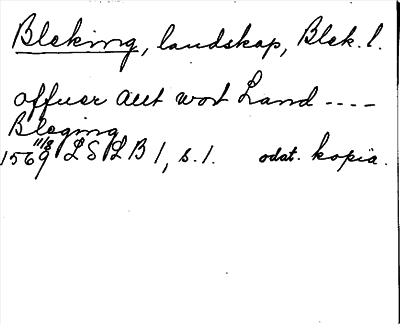 Bleking, landskap, Blek. l.
offuer alt wort Land ----
Bleging
1569 11/8 LSLB 1, s. 1. odat. kopia.